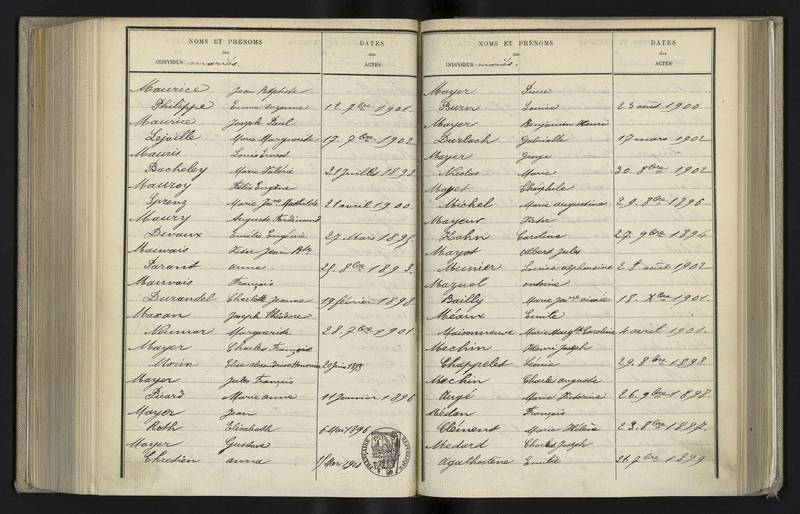 NOMS ET PRÉNOMS
des
INDIVIDUS mariés.
DATES
des
ACTES
Maurice Jean Baptiste
Philippe Emma Suzanne 12. 7bre 1901.
Maurice Joseph Paul
Lejaille Marie Marguerite 17. 7bre 1902
Mauris Louis Ernest
Bacheley Marie Valérie 21 Juillet 1898
Mauroy Félix Eugène
Sprenz Marie Mathilde 21 avril 1900.
Maury Auguste Ferdinand
Devaux Emélie Eugénie 27 Mars 1895.
Mauvais Victor Jean Bte
Parant anne 29. 8bre 1893.
Mauvais François
Durandel Charlotte Jeanne 19 février 1898
Maxan Joseph Théodore
Neumar Marguerite 28. 7bre 1901.
Mayer Charles François
Morin Elise 20 Juin
Mayer Jules François
Picard Marie anne 11 Janvier 1896
Mayer Jean
Roth Elisabeth 6 Mai 1896
Mayer Gustave
Chretien anna
NOMS ET PRÉNOMS
des
INDIVIDUS mariés.
DATES
des
ACTES
Mayer
Burn Louise 23 août 1900.
Mayer Benjamin Henri
Durlach Gabrielle 17 mars 1902
Mayer George
Nicolas Marie 30. 8bre 1902
Mayet Théophile
Michel Marie augustine 29. 8bre 1896
Mayeur Victor
Hahn Caroline 27. 9bre 1894.
Mayot Albert Jules
Meunier Louise alphonsine 28 août 1902
Mazuel antoine
Bailly Marie aimée 18. Xbre 1901.
Méaux Emile
Maisonneuve Marie Caroline 4 avril 1901.
Mechin Henri Joseph
Chappelet Léonie 29. 8bre 1898
Mechin Charles auguste
Augé Marie Victorine 26. 9bre 1898.
Médan François
Clément Marie Hélène 23. 8bre 1897.
Medard Charles Joseph
Emilie 21. 7bre 1899